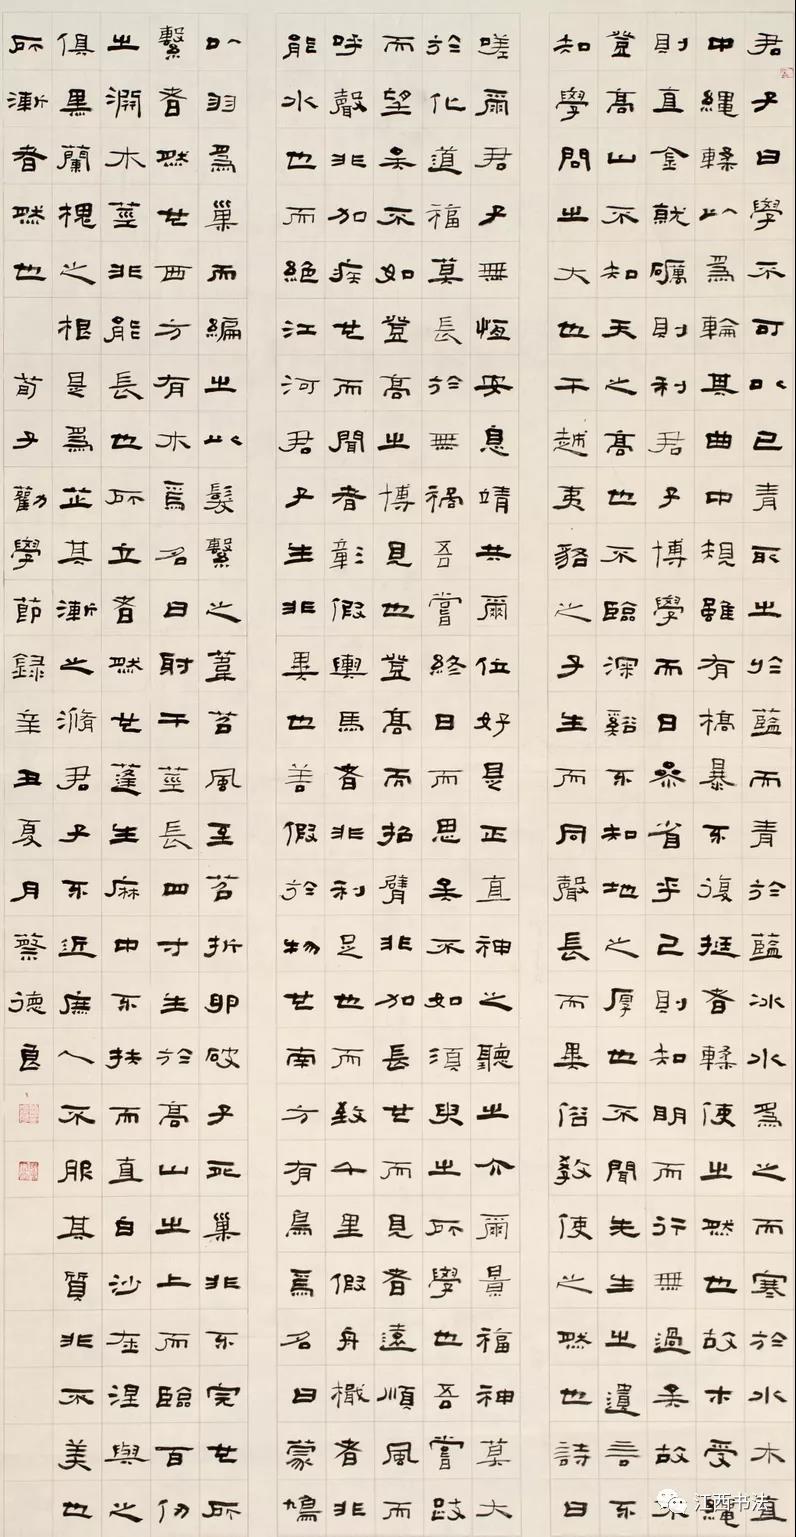 君子曰學不可以已青取之於藍而青於藍冰水爲之而寒於水木直
中繩輮以爲輪其曲中規雖有槁暴不復挺者輮使之然也故木受繩
則直金就礪則利君子博學而日參省乎己則知明而行無過矣故不
登高山不知天之高也不臨深谿不知地之厚也不聞先生之遺言不
知學問之大也干越夷貉之子生而同聲長而異俗教使之然也詩曰
嗟爾君子無恆安息靖共爾位好是正直神之聽之介爾景福神莫大
於化道福莫長於無禍吾嘗終日而思矣不如須臾之所學也吾嘗跂
而望矣不如登高之博見也登高而招臂非加長也而見者遠順風而
呼聲非加疾也而聞者彰假輿馬者非利足也而致千里假舟檝者非
能水也而絕江河君子生非異也善假於物也南方有鳥焉名曰蒙鳩
以羽爲巢而編之以髮繫之葦苕風至苕折卵破子死巢非不完也所
繫者然也西方有木焉名曰射干莖長四寸生於高山之上而臨百仞
之淵木莖非能長也所立者然也蓬生麻中不扶而直白沙在涅與之
俱黑蘭槐之根是爲芷其漸之滫君子不近庶人不服其質非不美也
所漸者然也 荀子勸學節録辛丑夏月蔡德良
江西书法